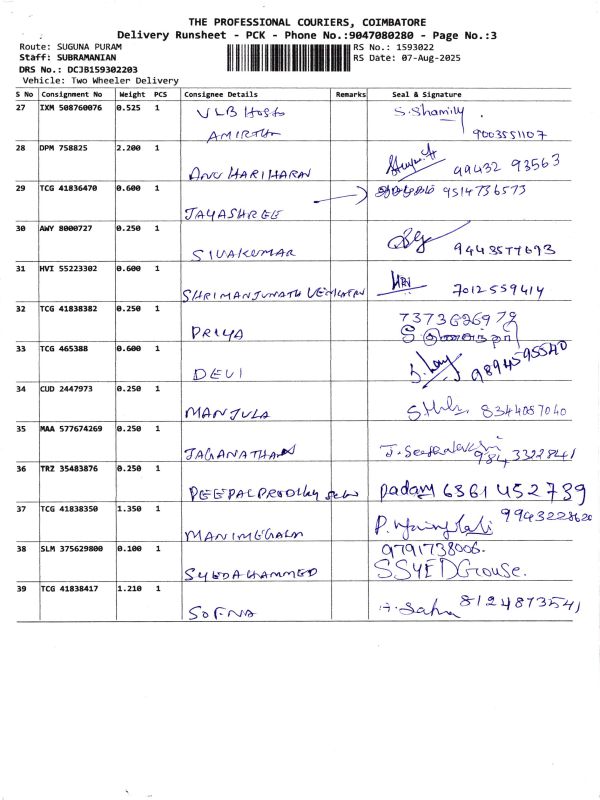 THE PROFESSIONAL COURIERS, COIMBATORE
Delivery Runsheet - PCK - Phone No.:9047080280 - Page No.:3
Route: SUGUNA PURAM RS No.: 1593022
Staff: SUBRAMANIAN RS Date: 07-Aug-2025
DRS No.: DCJB159302203
Vehicle: Two Wheeler Delivery
S No Consignment No Weight PCS Consignee Details Remarks Seal & Signature
27 IXM 508760076 0.525 1 VLB S. Shamily
AMIRTH 9003551107
28 DPM 758825 2.200 1
ANU HARIHARAN 99432 93563
29 TCG 41836470 0.600 1 9514736573
JAYASHREE
30 AWY 8000727 0.250 1
SIVAKUMAR 9443577693
31 HVI 55223302 0.600 1
SHRIMANJUNATH 7012559414
32 TCG 41838382 0.250 1 7373626972
PRIYA
33 TCG 465388 0.600 1
DEVI 9894595540
34 CUD 2447973 0.250 1
MANJULA 8344057040
35 MAA 577674269 0.250 1
9843322841
36 TRZ 35483876 0.250 1
padary 6361452739
37 TCG 41838350 1.350 1 9943228620
MANIMEGALA
38 SLM 375629800 0.100 1 9791738006.
SYEDAHAMMED
39 TCG 41838417 1.210 1
SOFNA 8124873541